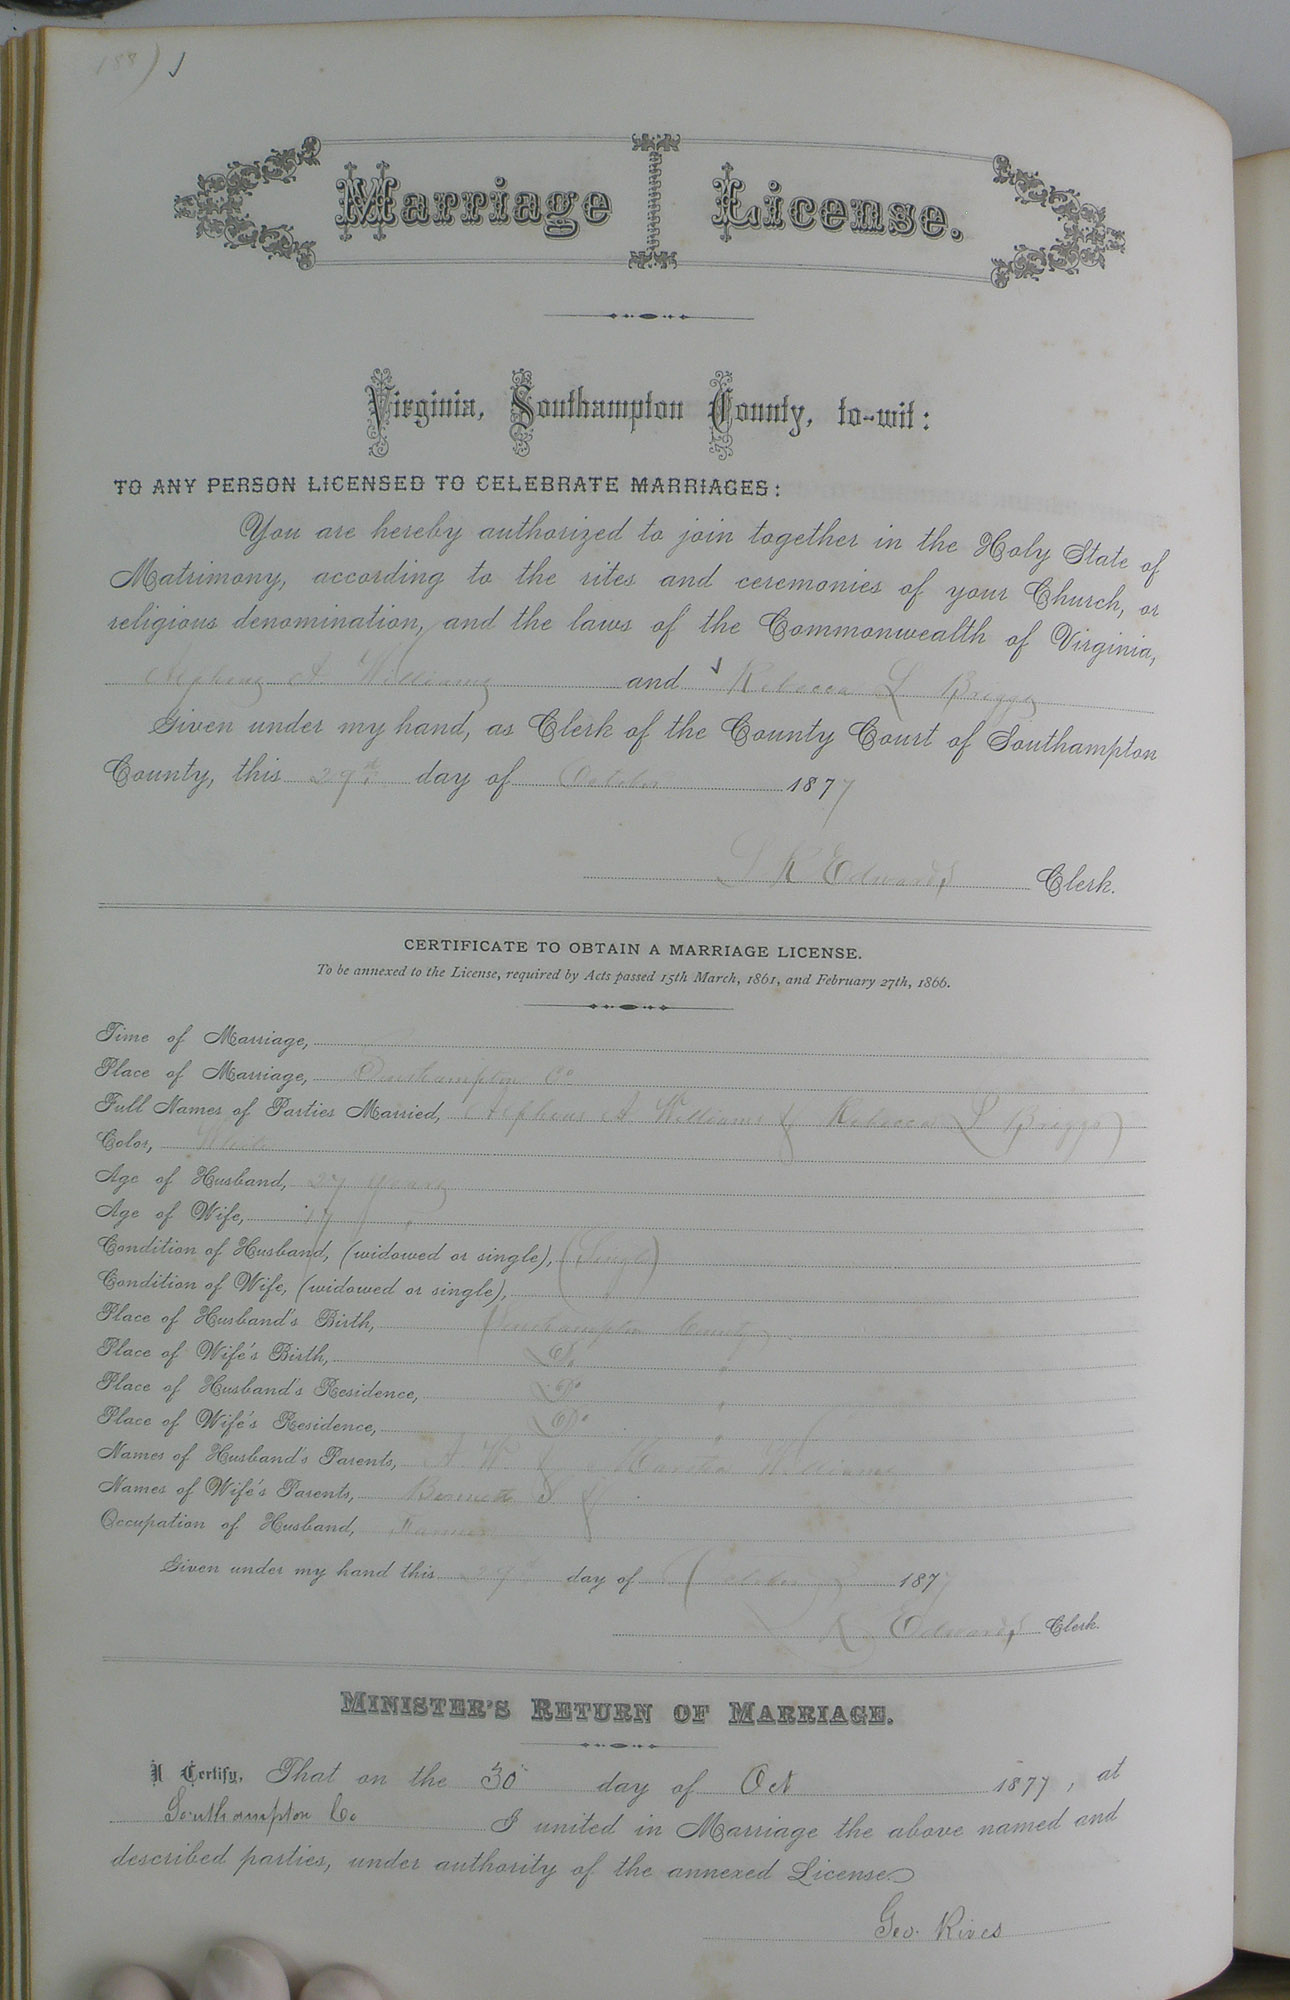 188)
Marriage License.
Virginia, Southampton County, to-wit:
TO ANY PERSON LICENSED TO CELEBRATE MARRIAGES:
You are hereby authorized to join together in the Holy State of
Matrimony, according to the rites and ceremonies of your Church, or
religious denomination, and the laws of the Commonwealth of Virginia,
Alpheus A Williams and Rebecca L Briggs
Given under my hand, as Clerk of the County Court of Southampton
County, this 29th day of October 1877
L R Edwards Clerk.
CERTIFICATE TO OBTAIN A MARRIAGE LICENSE.
To be annexed to the License, required by Acts passed 15th March, 1861, and February 27th, 1866.
Time of Marriage,
Place of Marriage, Southampton Co
Full Names of Parties Married, Alpheus A Williams & Rebecca L Briggs
Color, White
Age of Husband, 27 years
Age of Wife, 17 "
Condition of Husband, (widowed or single), (Single)
Condition of Wife, (widowed or single), "
Place of Husband's Birth, Southampton County
Place of Wife's Birth, Do "
Place of Husband's Residence, Do "
Place of Wife's Residence, Do "
Names of Husband's Parents, A. W. & Martha Williams
Names of Wife's Parents, Bennett S &
Occupation of Husband, Farmer
Given under my hand this 29th day of October 1877
L R Edwards Clerk.
MINISTER'S RETURN OF MARRIAGE.
I Certify, That on the 30 day of Oct 1877, at
Southampton Co I united in Marriage the above named and
described parties, under authority of the annexed License
Geo. Rives